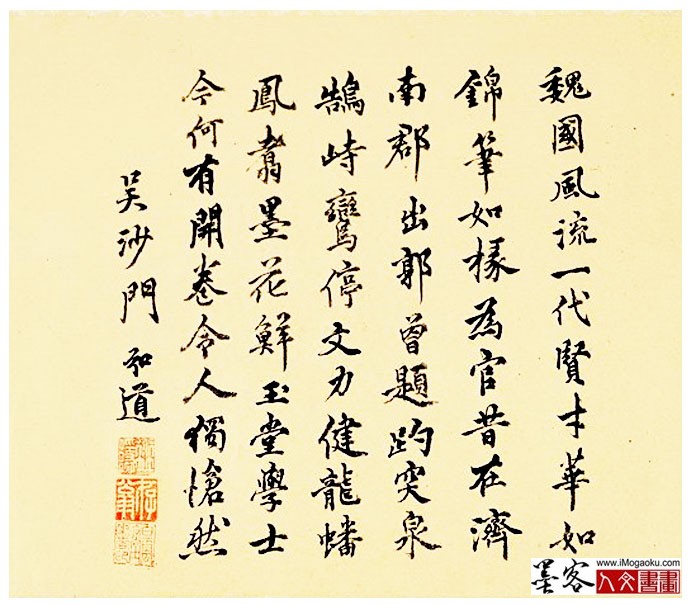 魏國風流一代賢才華如
錦筆如椽為官昔在濟
南郡出郭曾題趵突泉
鵠峙鸞停文力健龍蟠
鳳翥墨花鮮玉堂學士
今何有開卷令人獨愴然
吴沙門弘道
墨客
www.iMogaoku.com
人文書畫